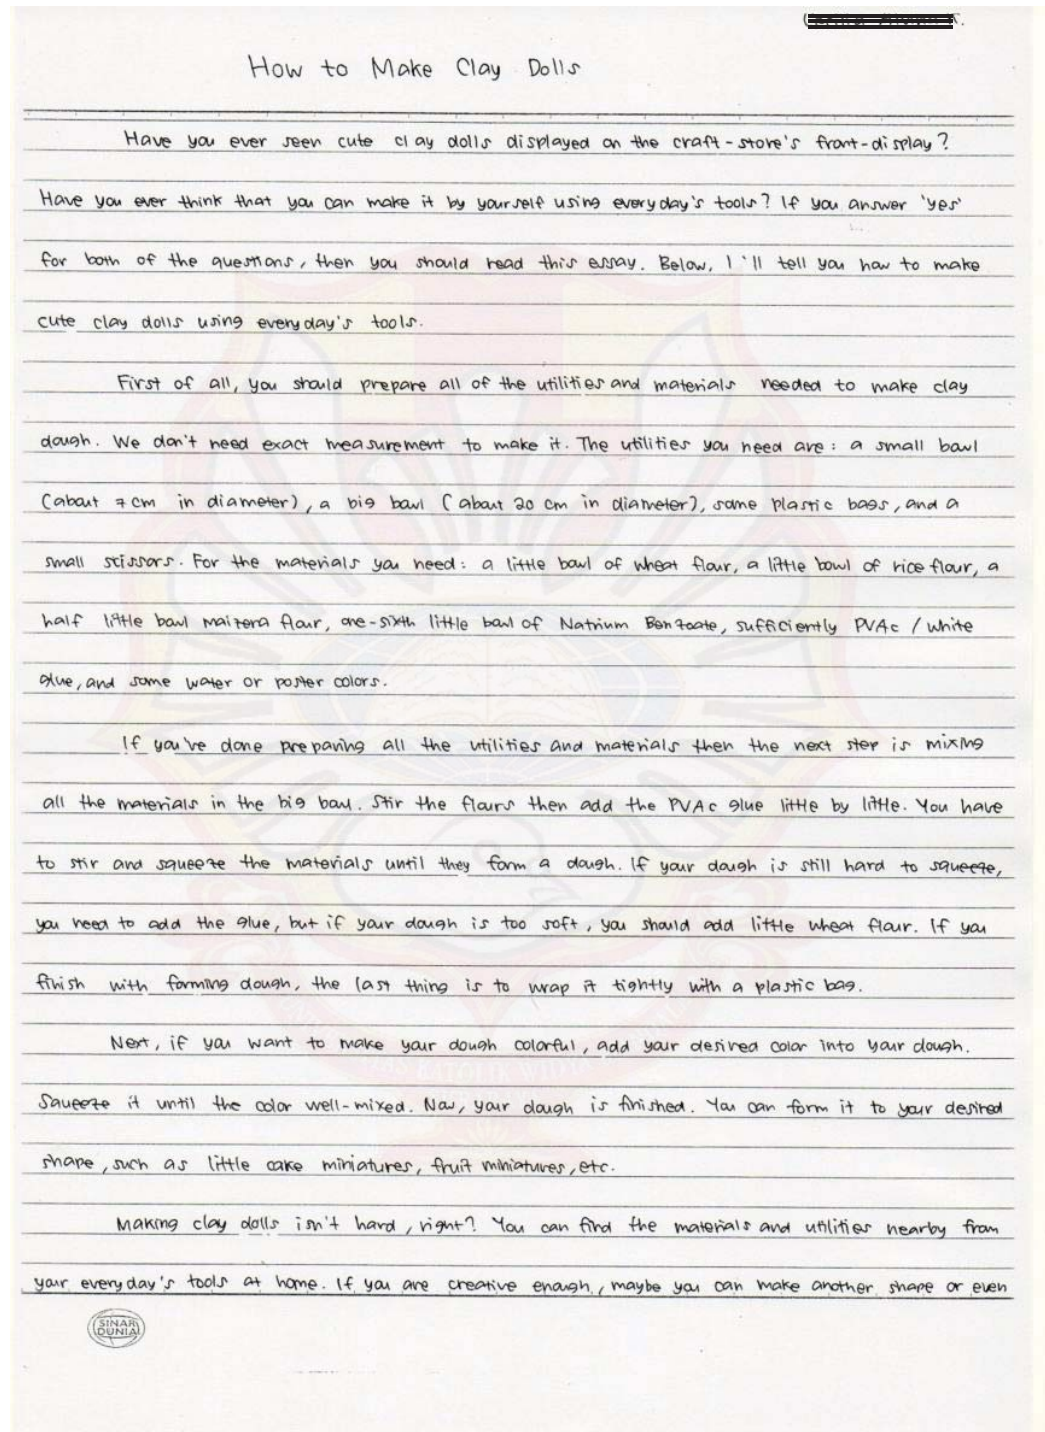 How to Make Clay Dolls
Have you ever seen cute clay dolls displayed on the craft-store's front-display?
Have you ever think that you can make it by yourself using everyday's tools? If you answer 'yes'
for both of the questions, then you should read this essay. Below, I'll tell you how to make
cute clay dolls using everyday's tools.
First of all, you should prepare all of the utilities and materials needed to make clay
dough. We don't need exact measurement to make it. The utilities you need are: a small bowl
(about 7 cm in diameter), a big bowl (about 20 cm in diameter), some plastic bags, and a
small scissors. For the materials you need: a little bowl of wheat flour, a little bowl of rice flour, a
half little bowl maizena flour, one-sixth little bowl of Natrium Benzoate, sufficiently PVAc / white
glue, and some water or poster colors.
If you've done preparing all the utilities and materials then the next step is mixing
all the materials in the big bowl. Stir the flours then add the PVAc glue little by little. You have
to stir and squeeze the materials until they form a dough. If your dough is still hard to squeeze,
you need to add the glue, but if your dough is too soft, you should add little wheat flour. If you
finish with forming dough, the last thing is to wrap it tightly with a plastic bag.
Next, if you want to make your dough colorful, add your desired color into your dough.
Squeeze it until the color well-mixed. Now, your dough is finished. You can form it to your desired
shape, such as little cake miniatures, fruit miniatures, etc.
Making clay dolls isn't hard, right? You can find the materials and utilities nearby from
your everyday's tools at home. If you are creative enough, maybe you can make another shape or even
SINAR
DUNIA